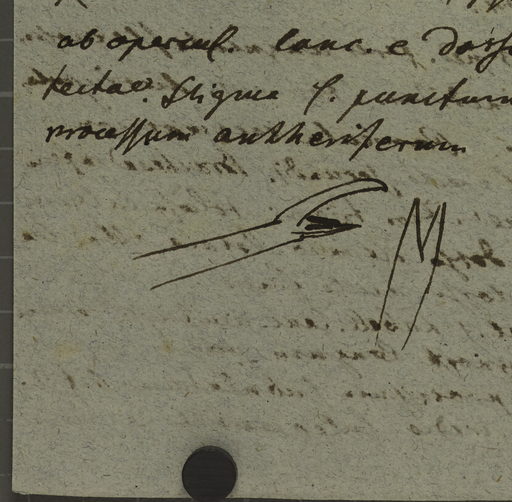 ab opercul. lanc. e dorso
tectae. Stigma l. punctum
processum antheriferum